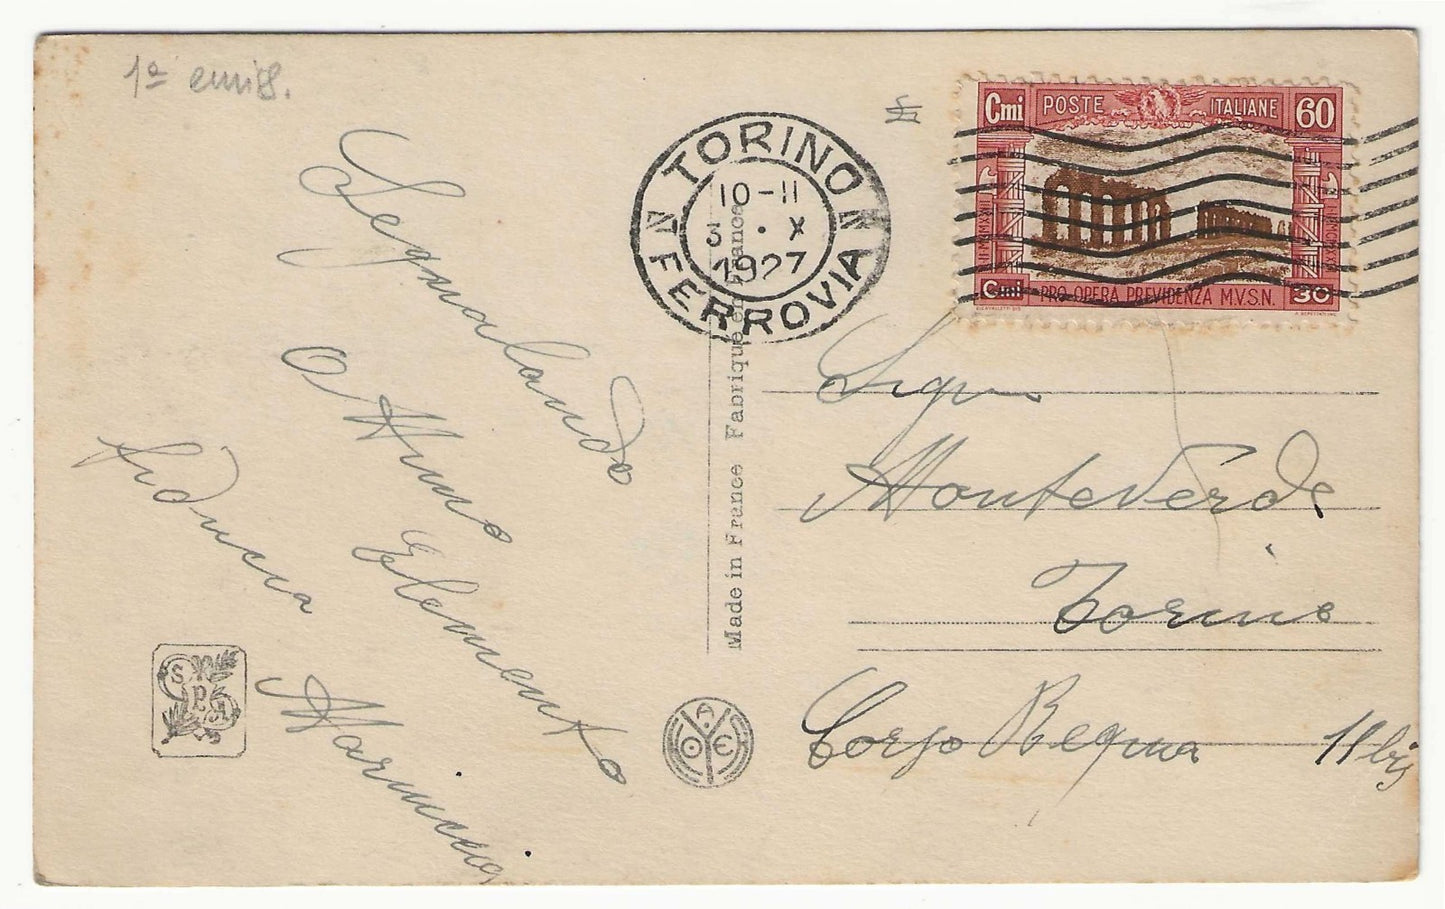 1ª emiss.
Segnalando
Ottimo
Elemento
fiducia
TORINO
10-11
3 · X
1927
FERROVIA
Cmi POSTE ITALIANE 60
Cmi PRO OPERA PREVIDENZA M.V.S.N. 30
Made in France Fabriqué en France
Monteverde
Torino
Corso Regina 11 bis
S P A
A O E